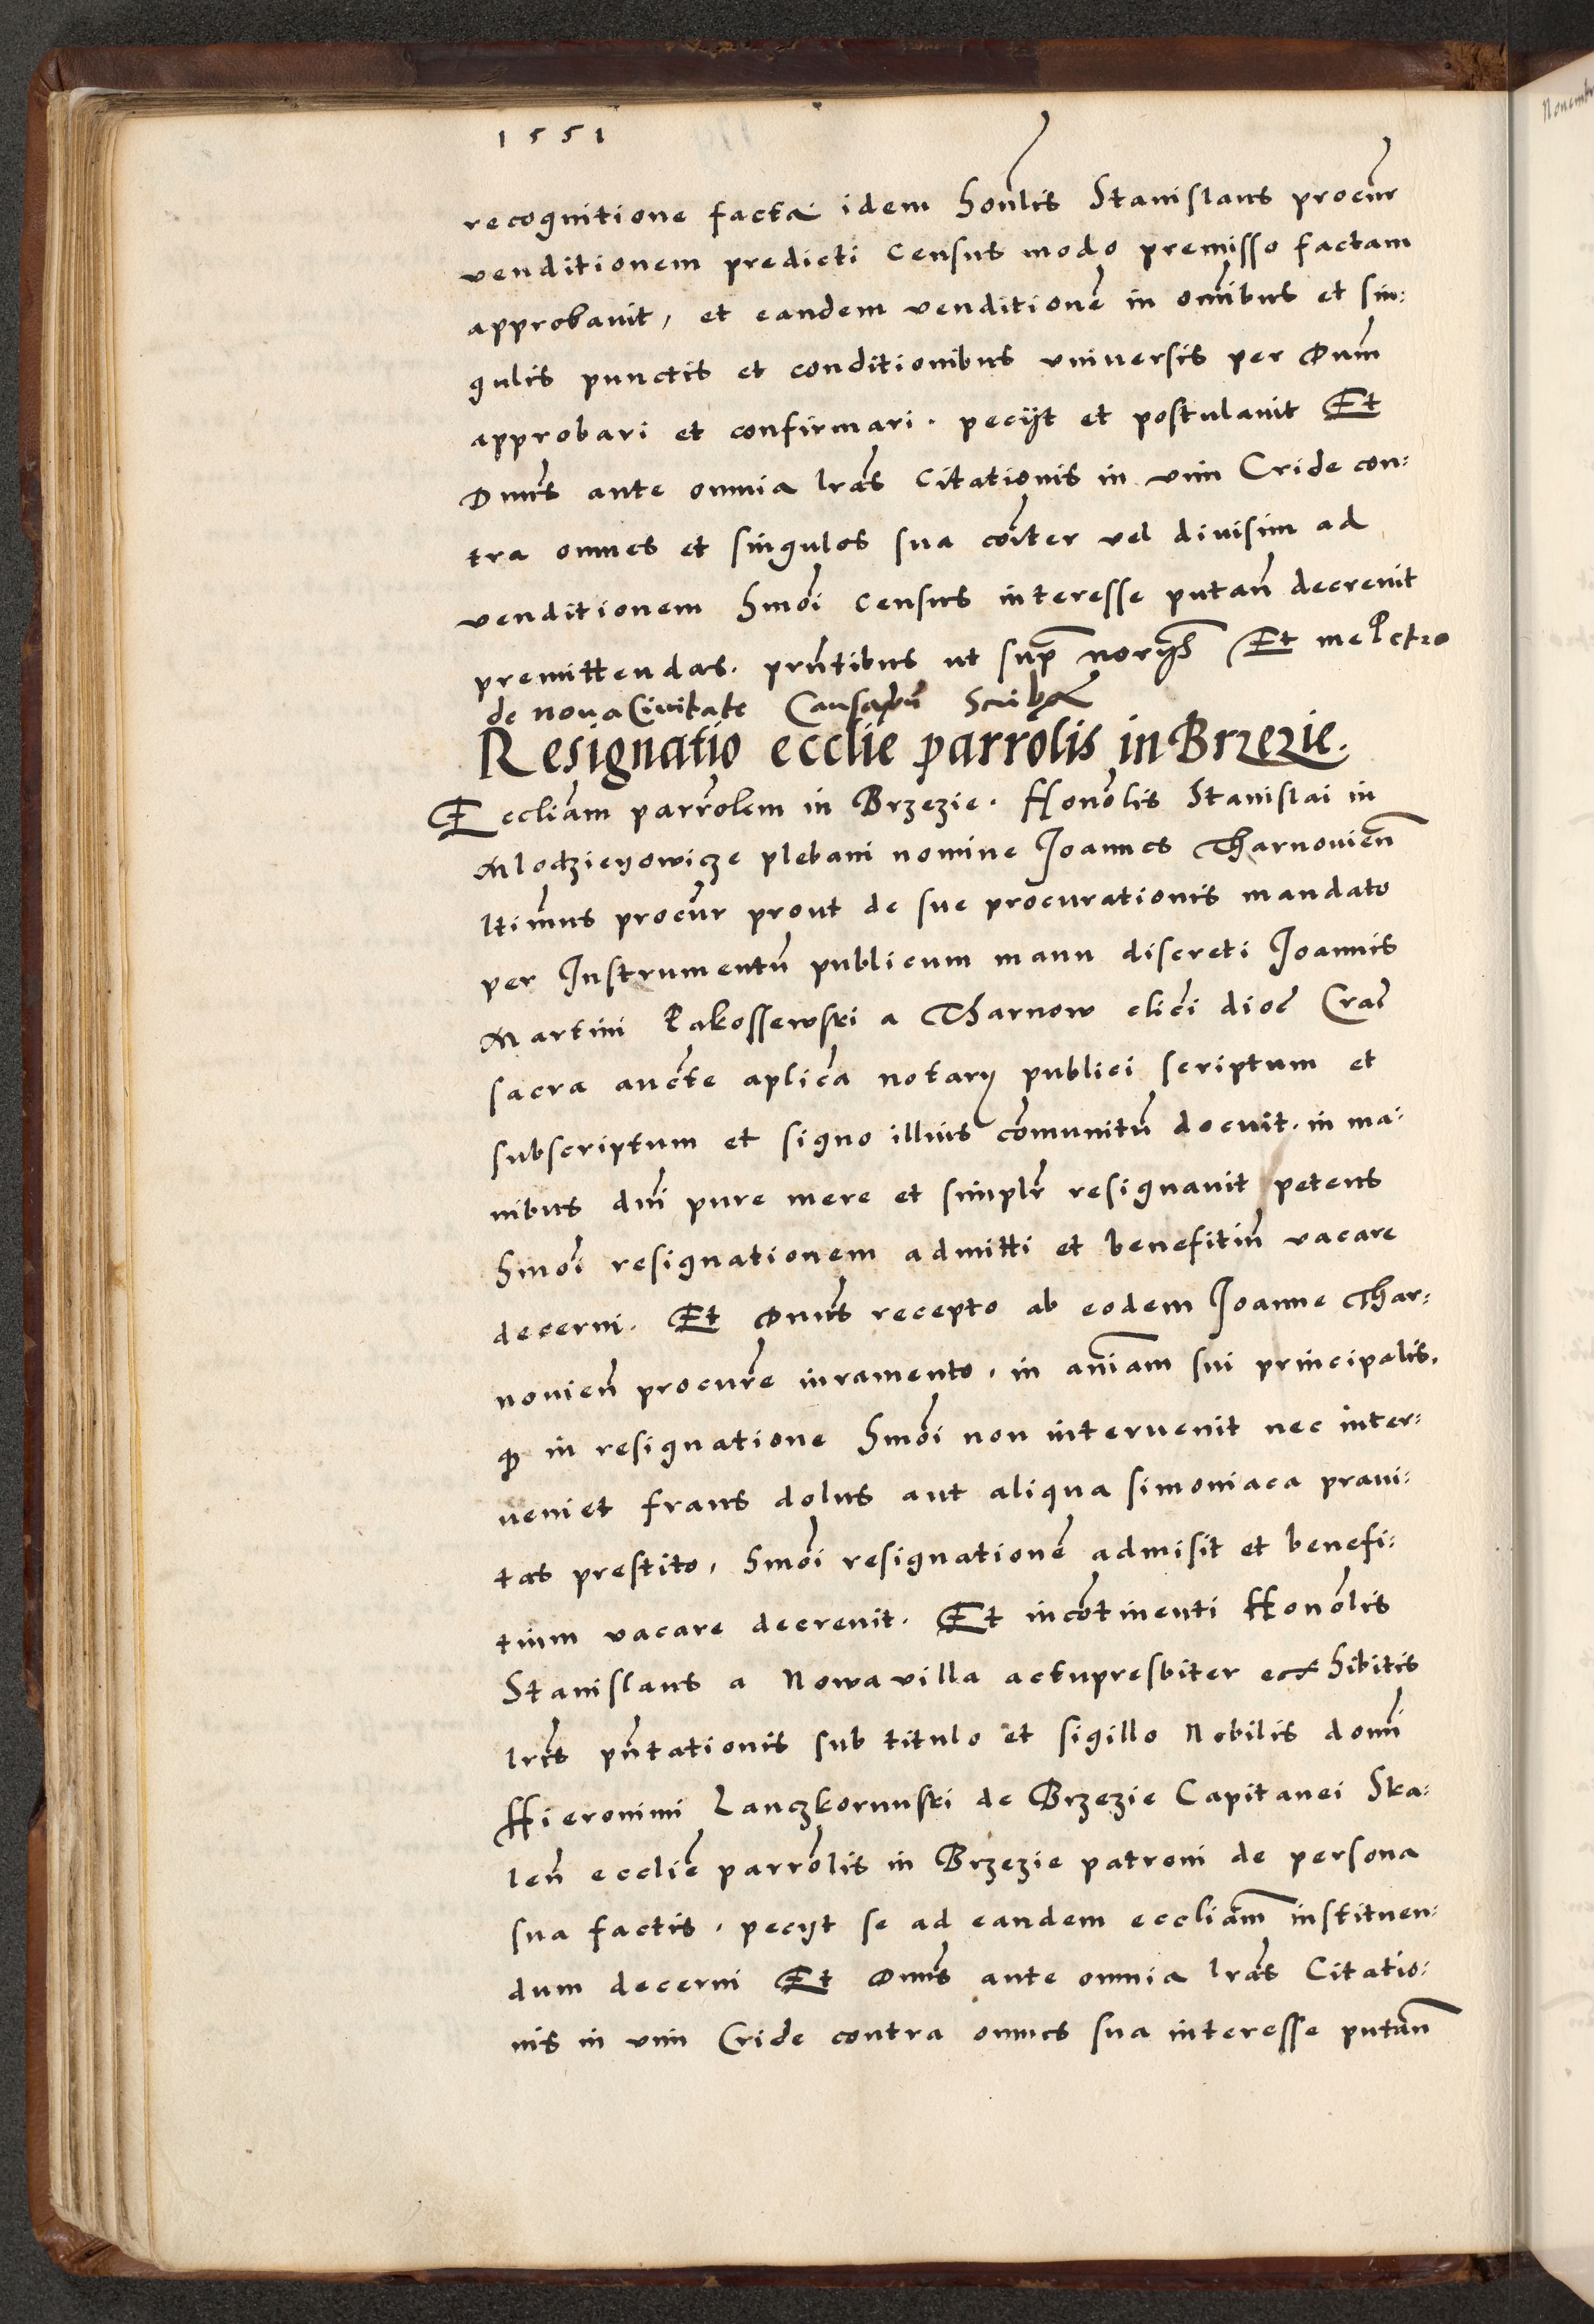 1551
recognitione facta idem honlis Stanislaus procur
venditionem predicti census modo premisso factam
approbavit, et eandem venditionē in omibus et sin:
gulis punctis et conditionibus universis per Dnm
approbari et confirmari. pecijt et postulavit Et
Dnus ante omnia lras citationis in vim Cride con:
tra omnes et singulos sua coiter vel divisim ad
venditionem hmoi census interesse putan̄ decrevit
premittendas. prntibus ut sup norijs Et me Petro
de nova Civitate Causarū Scriba
Resignatio ecclie parrolis in Brzezie.
Eccliam parrolem in Brzezie. Honolis Stanislai in
Mlodzieyowicze plebani nomine Joannes Tharnovien̄
ltimus procur prout de sue procurationis mandato
per Instrumentū publicum manu discreti Joannis
Martini Rakossewski a Tharnow clici dioc Crac
sacra aucte aplica notarij publici scriptum et
subscriptum et signo illius cōmunitū docuit. in ma:
nibus dni pure mere et simplr resignavit petens
hmoi resignationem admitti et benefitiū vacare
decerni. Et Dnus recepto ab eodem Joanne Thar:
novien̄ procure iuramento, in aniam sui principalis,
q in resignatione hmoi non intervenit nec inter:
veniet fraus dolus aut aliqua simoniaca pravi:
tas prestito, hmoi resignationē admisit et benefi:
tium vacare decrevit. Et incōtinenti Honolis
Stanislaus a Nowa villa actupresbiter exhibitis
lris pntationis sub titulo et sigillo Nobilis domi
Hieronimi Lanczkorunski de Brzezie Capitanei Ska:
len̄ ecclie parrolis in Brzezie patroni de persona
sua factis, pecijt se ad eandem eccliam instituen:
dum decerni Et Dnus ante omnia lras Citatio:
nis in vim Cride contra omnes sua interesse putan̄